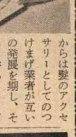 からは髪のアクセ
サリーとしてのつ
けまげ業者が互い
の発展を期し、そ